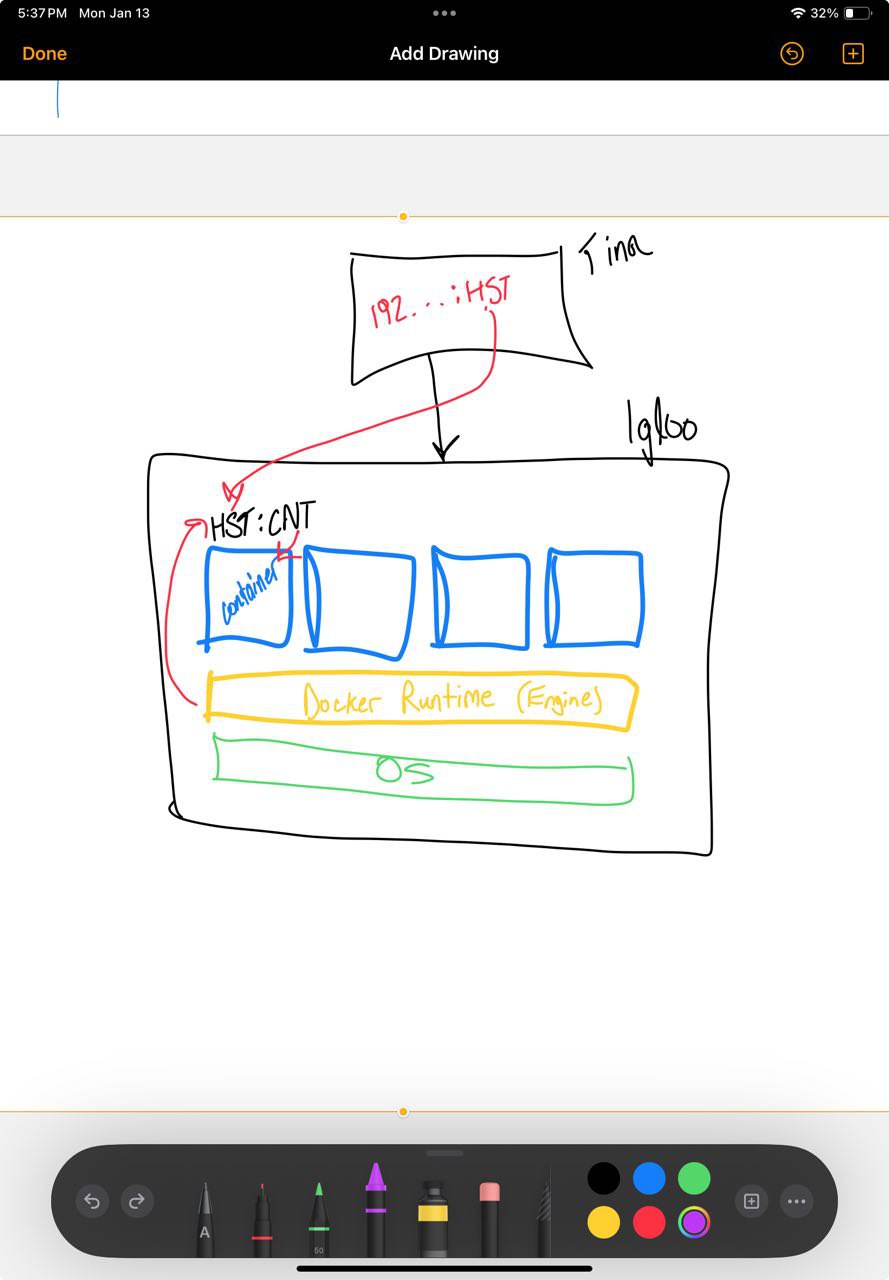 5:37 PM Mon Jan 13
32%
Done
Add Drawing
Tina
192...:HST
Igloo
HST:CNT
container
Docker Runtime (Engine)
OS
A
50